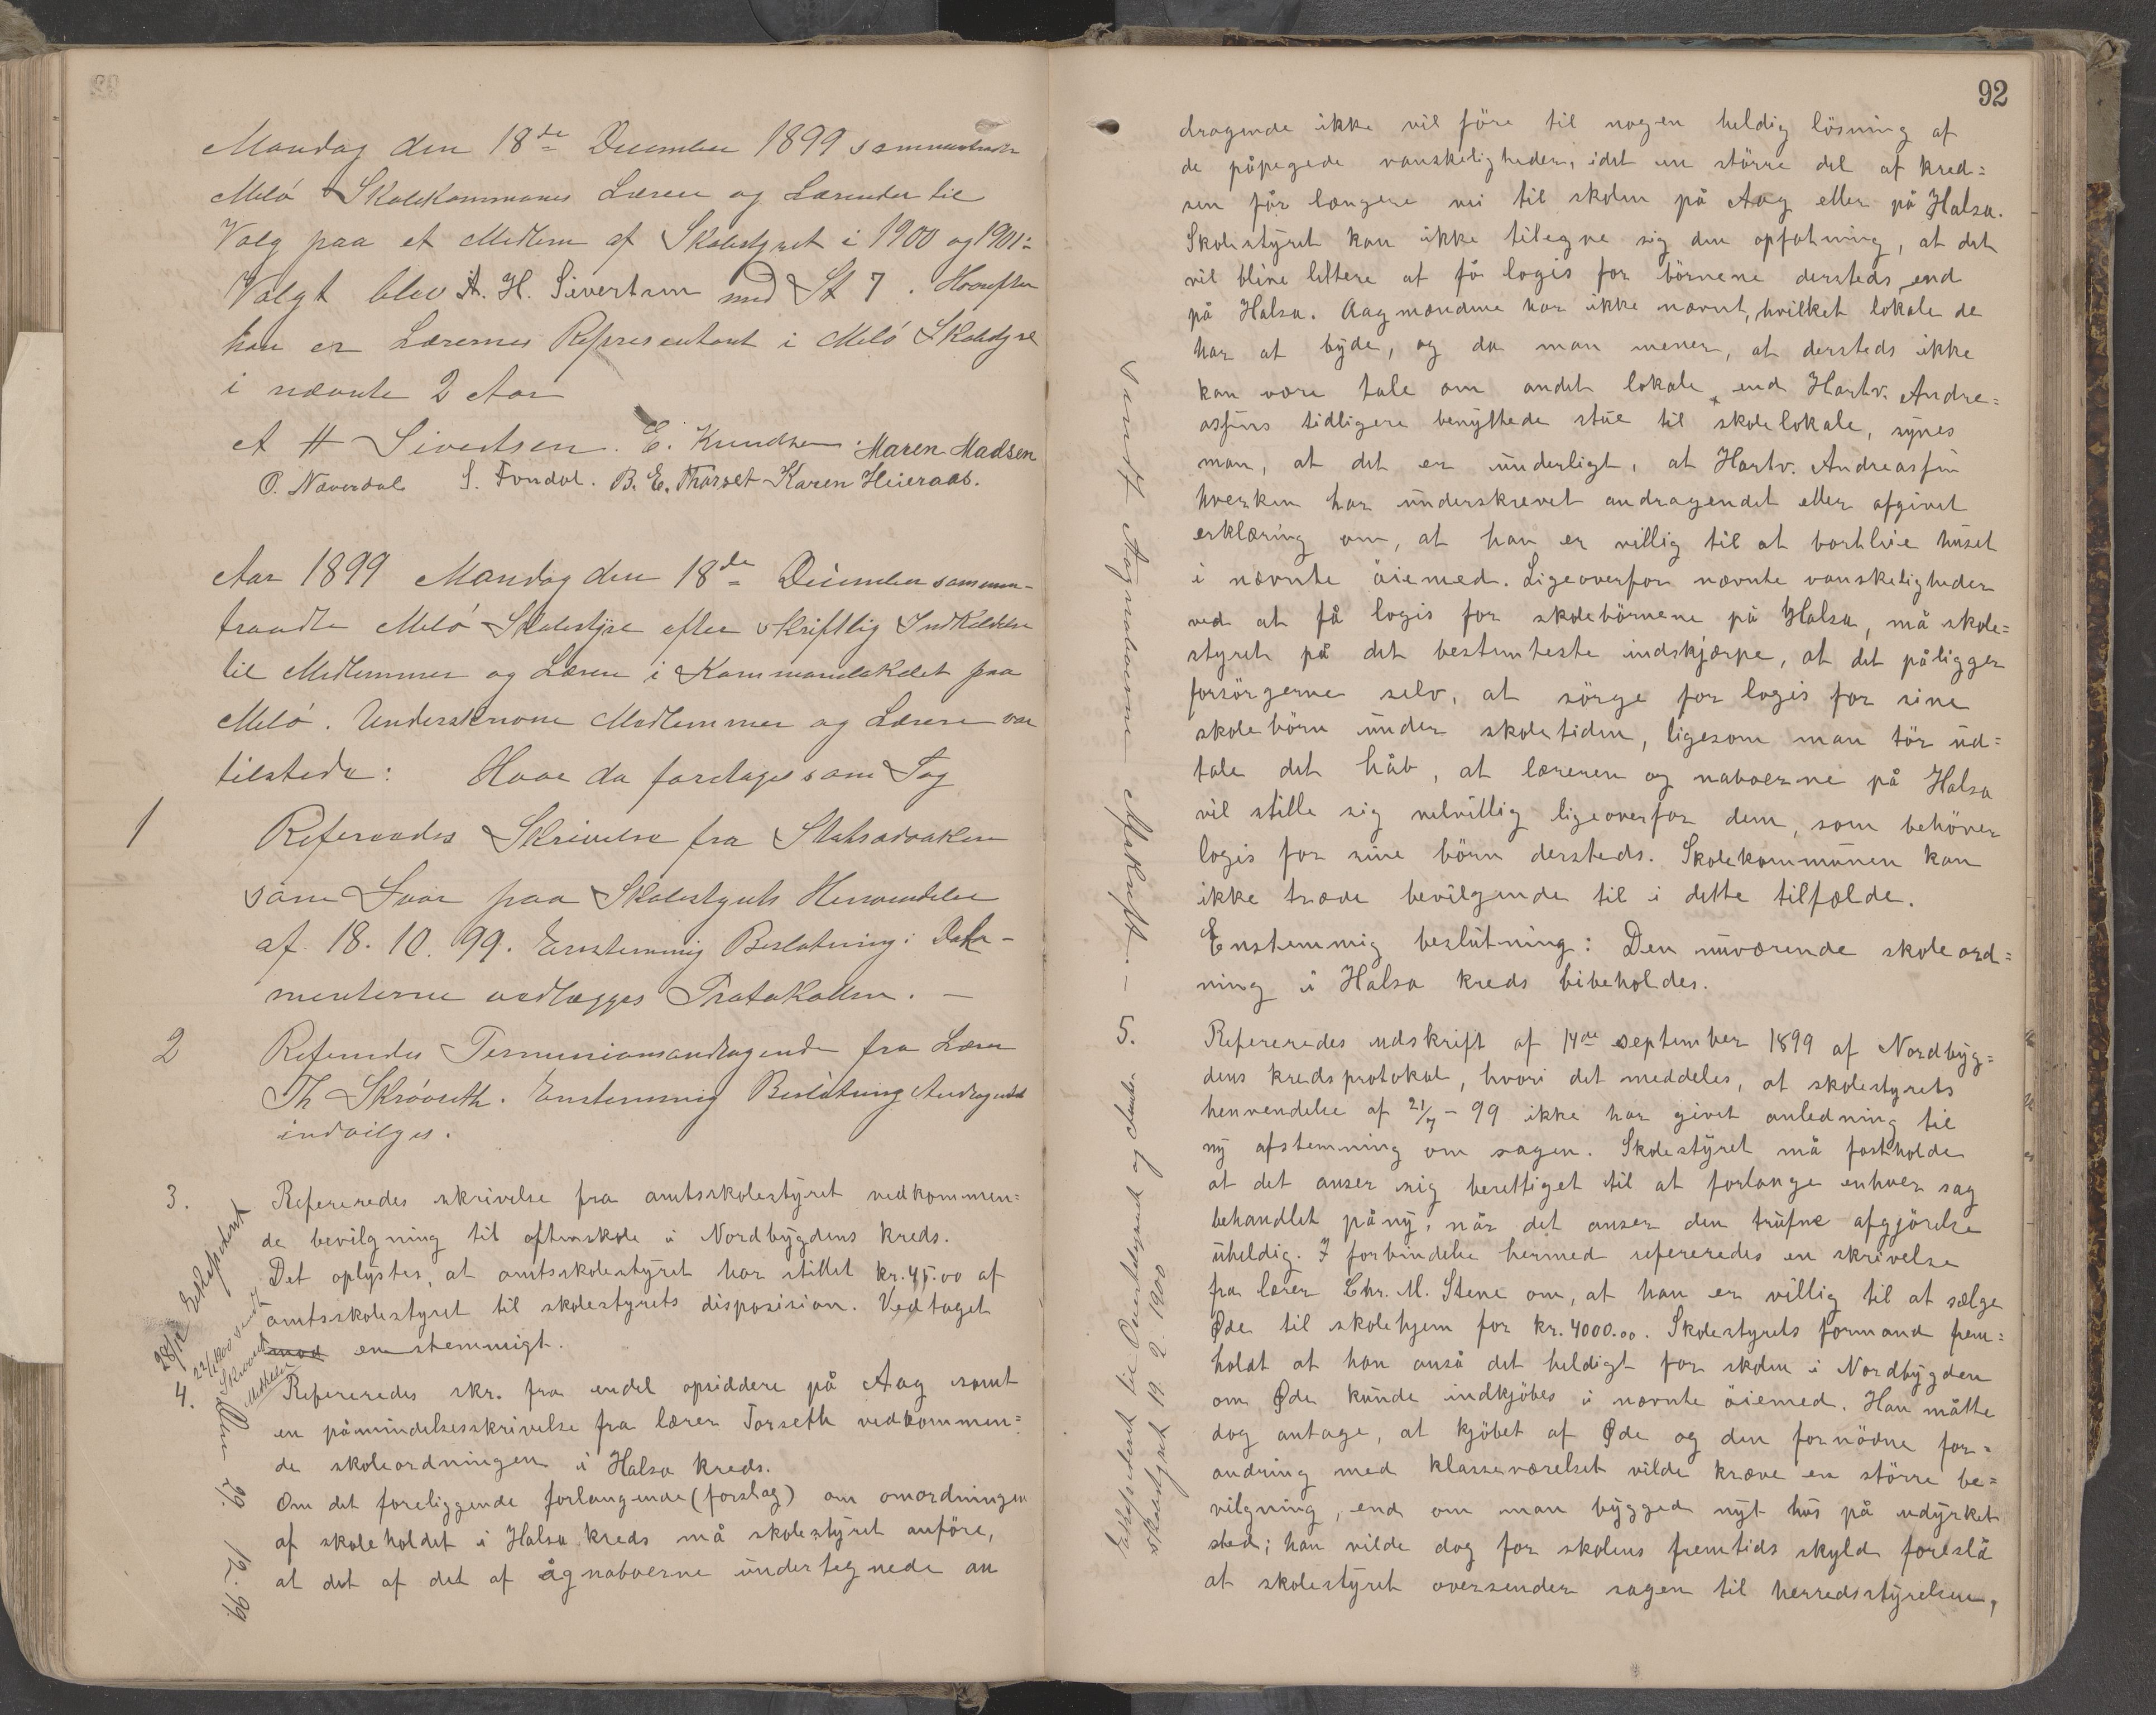 Mandag den 18de December 1899 sammentraadte
Meló Skolekommunes Lærere og Lærerinder til
Valg paa et Medlem af Skolestyret i 1900 og 1901:
Valgt blev A. H. Sivertsen med St 7. Hvorefter
han er Lærernes Representant i Meló Skolestyre
i nævnte 2 Aar
A H Sivertsen. E. Knudsen. Maren Madsen
P. Næverdal S. Fondal. B. E. Thorset Karen Heieraas.
Aar 1899 Mandag den 18de December sammen-
traadte Meló Skolestyre efter skriftlig Indkaldelse
til Medlemmer og Lærere i Kommunelokalet paa
Meló. Underskrevne Medlemmer og Lærere var
tilstede: Hvor da foretoges som Sag
1 Refereredes Skrivelse fra Statsadvokaten
som Svar paa Skolestyrets Henvendelse
af 18. 10. 99. Enstemmig Beslutning: Doku-
menterne vedlægges Protokollen. —
2 Refereredes Permissionsandragende fra Lærer
Th Skróvseth. Enstemmig Beslutning Andragendet
indvilges.
3. Refereredes skrivelse fra amtsskolestyret vedkommen=
de bevilgning til aftenskole i Nordbygdens kreds.
Det oplystes, at amtsskolestyret har stillet kr. 45.00 af
amtsskolestyret til skolestyrets disposision. Vedtaget
mod enstemmigt.
28/12 Ekspedert
22/1 1900 sendt
4. Refereredes skr. fra endel opsiddere på Aag samt
en påmindelsesskrivelse fra lærer Torseth vedkommen=
de skoleordningen i Halsa kreds.
Om det foreliggende forlangende (forslag) om omordningen
af skoleholdet i Halsa kreds må skolestyret anföre,
at det af det af åg naboerne undertegnede an
29. 12. 99.
92
dragende ikke vil före til nogen heldig lösning af
de påpegede vanskeligheder, idet en större del af kred=
sen får længere vei til skolen på Aag eller på Halsa.
Skolestyret kan ikke tilegne sig den opfatning, at det
vil blive lettere at få logis for börnene dersteds, end
på Halsa. Aagmændene har ikke nævnt, hvilket lokale de
har at byde, og da man mener, at dersteds ikke
kan være tale om andet lokale, end Hartv. Andre=
assens tidligere benyttede stue til skolelokale, synes
man, at det er underligt, at Hartv. Andreassen
hverken har underskrevet andragendet eller afgivet
erklæring om, at han er villig til at bortleie huset
i nævnte öiemed. Ligeoverfor nævnte vanskeligheder
ved at få logis for skolebörnene på Halsa, må skole=
styret på det bestemteste indskjærpe, at det påligger
forsörgerne selv, at sörge for logis for sine
skolebörn under skoletiden, ligesom man tör ud=
tale det håb, at læreren og naboerne på Halsa
vil stille sig velvillig ligeoverfor dem, som behöver
logis for sine börn dersteds. Skolekommunen kan
ikke træde bevilgende til i dette tilfælde.
Enstemmig beslutning: Den nuværende skoleord=
ning i Halsa kreds bibeholdes.
Sendt Aagnaboerne Afskrift. —
5. Refereredes udskrift af 14de september 1899 af Nordbyg=
dens kredsprotokol, hvori det meddeles, at skolestyrets
henvendelse af 21/7 - 99 ikke har givet anledning til
ny afstemning om sagen. Skolestyret må fastholde
at det anser sig berettiget til at forlange enhver sag
behandlet påny, når det anser den trufne afgjörelse
uheldig. I forbindelse hermed refereredes en skrivelse
fra lærer Chr. M. Stene om, at han er villig til at sælge
Øde til skolehjem for kr. 4000.00. Skolestyrets formand frem=
holdt at han anså det heldigt for skolen i Nordbygden
om Øde kunde indkjöbes i nævnte öiemed. Han måtte
dog antage, at kjöbet af Øde og den fornödne for=
andring med klasseværelset vilde kræve en större be=
vilgning, end om man bygged nyt hus på udyrket
sted; han vilde dog for skolens fremtids skyld foreslå
at skolestyret oversender sagen til herredsstyrelsen,
Ekspederet til Overstyret og sendes
Skolestyret 19. 2. 1900